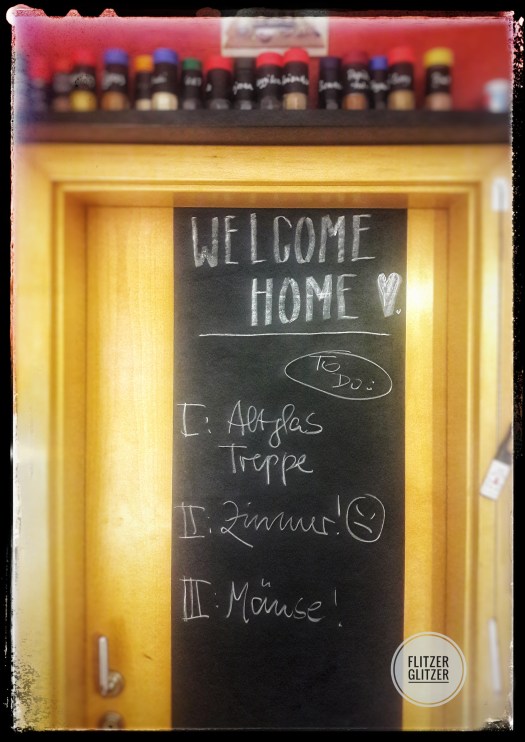 WELCOME
HOME
To
Do:
I: Altglas
Treppe
II: Zimmer!
III: Mäuse!
FLITZER
GLITZER